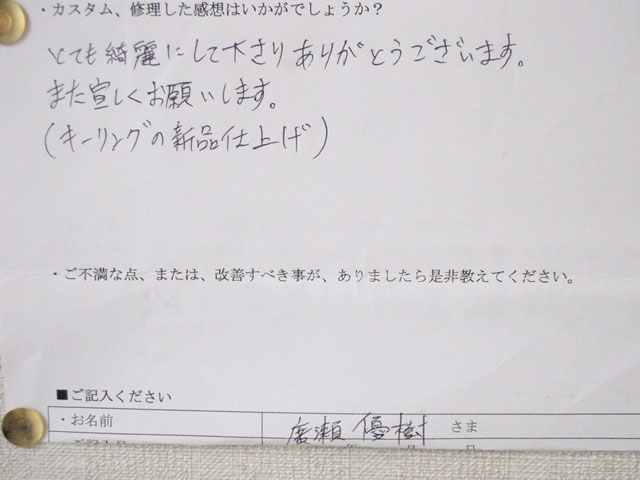 ・カスタム、修理した感想はいかがでしょうか？
とても綺麗にして下さりありがとうございます。
また宜しくお願いします。
(キーリングの新品仕上げ)
・ご不満な点、または、改善すべき事が、ありましたら是非教えてください。
■ご記入ください
・お名前 廣瀬 優樹 さま